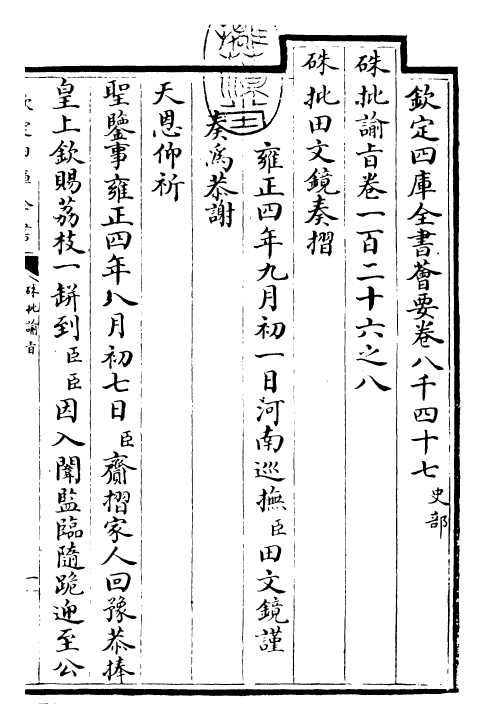 欽定四庫全書薈要卷八千四十七 史部
硃批諭旨卷一百二十六之八
硃批田文鏡奏摺
雍正四年九月初一日河南巡撫臣田文鏡謹
奏為恭謝
天恩仰祈
聖鑒事雍正四年八月初七日臣齎摺家人回豫恭捧
皇上欽賜荔枝一缾到臣臣因入闈監臨隨跪迎至公
硃批諭旨
一